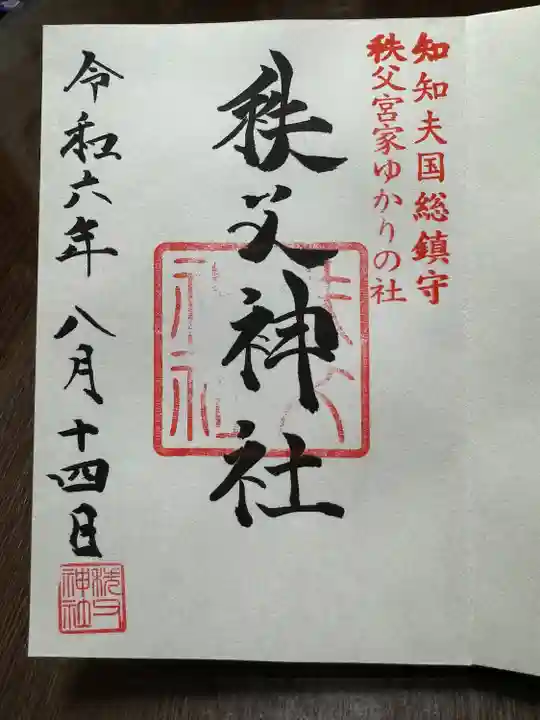 知知夫国総鎮守
秩父宮家ゆかりの社
秩父神社
令和六年 八月十四日
秩父
神社